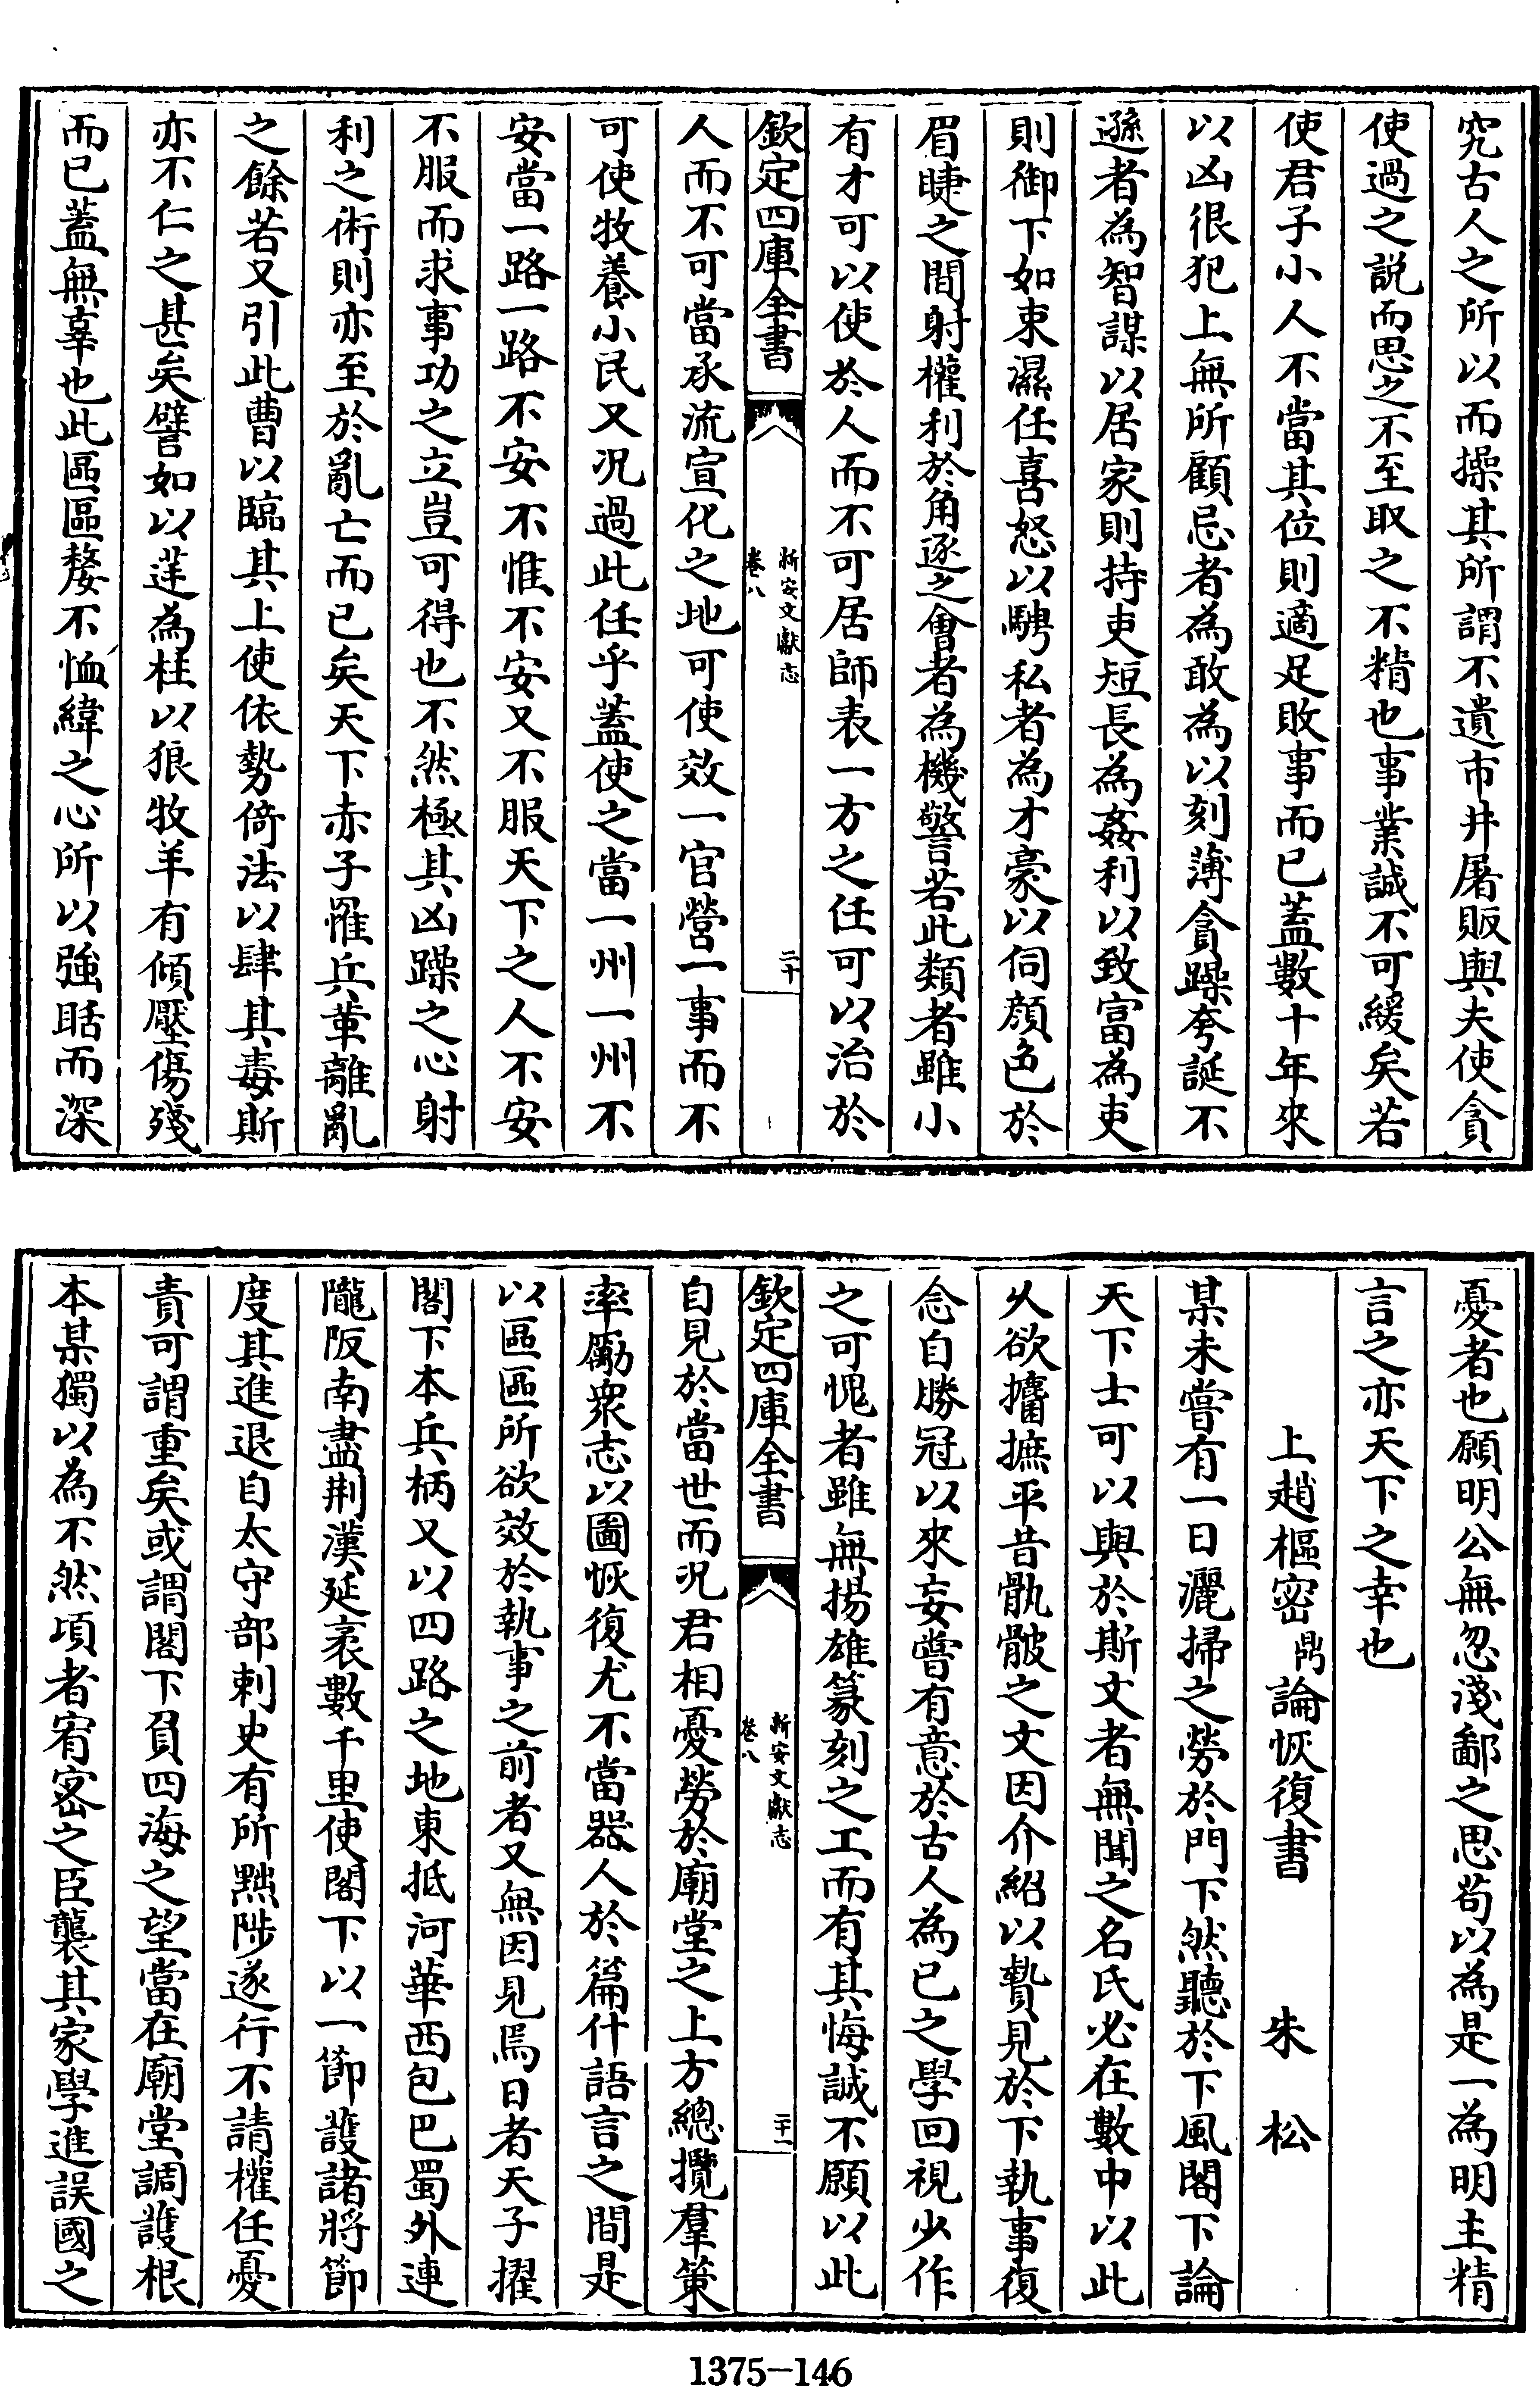 究古人之所以而操其所謂不遺市井屠販與夫使貪
使過之説而思之不至取之不精也事業誠不可緩矣若
使君子小人不當其位則適足敗事而已蓋數十年來
以凶很犯上無所顧忌者為敢為以刻薄貪躁夸誕不
遜者為智謀以居家則持吏短長為姦利以致富為吏
則御下如束濕任喜怒以騁私者為才豪以伺顔色於
眉睫之間射權利於角逐之會者為機警若此類者雖小
有才可以使於人而不可居師表一方之任可以治於
欽定四庫全書
新安文獻志
卷八
二十
人而不可當承流宣化之地可使效一官營一事而不
可使牧養小民又况過此任乎蓋使之當一州一州不
安當一路一路不安不惟不安又不服天下之人不安
不服而求事功之立豈可得也不然極其凶躁之心射
利之術則亦至於亂亡而已矣天下赤子罹兵革離亂
之餘若又引此曹以臨其上使依勢倚法以肆其毒斯
亦不仁之甚矣譬如以莛為柱以狼牧羊有傾壓傷殘
而已蓋無辜也此區區嫠不恤緯之心所以強聒而深
憂者也願明公無忽淺鄙之思苟以為是一為明主精
言之亦天下之幸也
上趙樞密鼎論恢復書 朱松
某未嘗有一日灑掃之勞於門下然聽於下風閣下論
天下士可以與於斯文者無聞之名氏必在數中以此
久欲攟摭平昔骩骳之文因介紹以贄見於下執事復
念自勝冠以來妄嘗有意於古人為已之學回視少作
之可愧者雖無揚雄篆刻之工而有其悔誠不願以此
欽定四庫全書
新安文獻志
卷八
二十一
自見於當世而况君相憂勞於廟堂之上方總攬羣策
率勵衆志以圖恢復尤不當器人於篇什語言之間是
以區區所欲效於執事之前者又無因見焉日者天子擢
閣下本兵柄又以四路之地東抵河華西包巴蜀外連
隴阪南盡荆漢延袤數千里使閣下以一節護諸將節
度其進退自太守部刺史有所黜陟遂行不請權任憂
責可謂重矣或謂閣下負四海之望當在廟堂調護根
本某獨以為不然頃者宥密之臣襲其家學進誤國之
1375-146